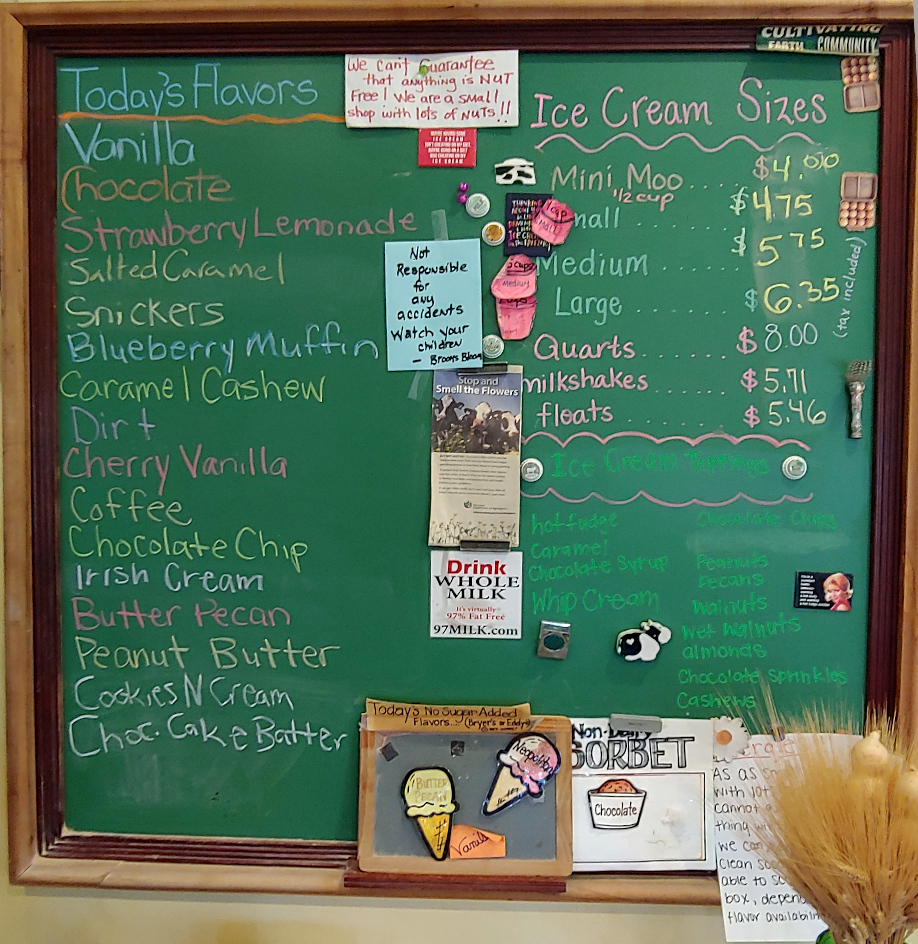 CULTIVATING
EARTH COMMUNITY
Today's Flavors
Vanilla
Chocolate
Strawberry Lemonade
Salted Caramel
Snickers
Blueberry Muffin
Caramel Cashew
Dirt
Cherry Vanilla
Coffee
Chocolate Chip
Irish Cream
Butter Pecan
Peanut Butter
Cookies N Cream
Choc. Cake Batter
We can't Guarantee
that anything is NUT
Free! We are a small
shop with lots of NUTS!!
Not
Responsible
for
any
accidents
Watch your
children
- Brooms Bloom
Stop and
Smell the Flowers
Drink
WHOLE
MILK
It's virtually
97% Fat Free
97MILK.com
Ice Cream Sizes
Mini Moo.... $4.00
1/2 cup
mall ..... $475
Medium ...... $575
Large ....... $6.35
(tax included)
Quarts ........ $8.00
milkshakes ....... $5.71
floats ......... $5.46
1 cup
Small
Medium
Ice Cream Toppings
hot fudge
Caramel
Chocolate Syrup
Whip Cream
Chocolate Chips
Peanuts
Pecans
Walnuts
Wet Walnuts
almonds
Chocolate Sprinkles
Cashews
Today's No Sugar Added
Flavors... (Bryer's or Eddy's)
BUTTER
PECAN
Neopoliton
Vanil
Non-Dairy
SORBET
Chocolate
As as
with lot
cannot
thing
we can
Clean
able to
box, depen
flavor availabili